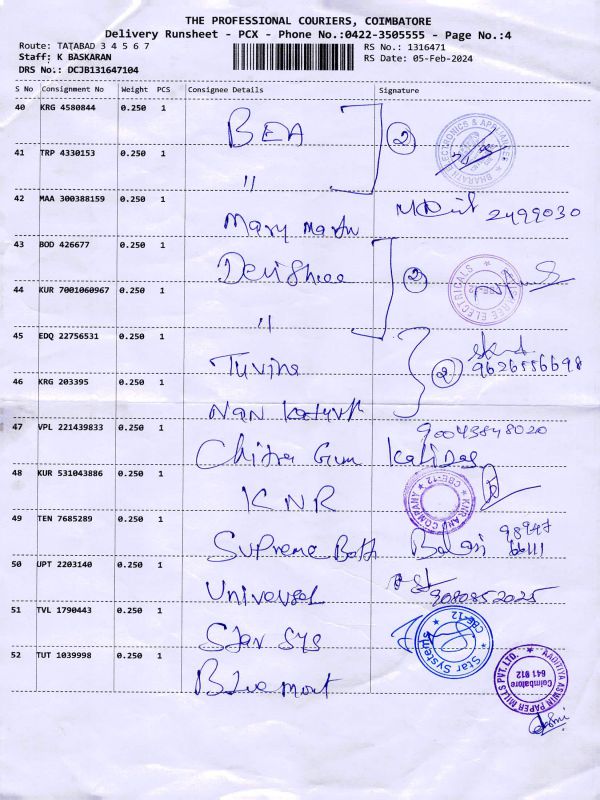 THE PROFESSIONAL COURIERS, COIMBATORE
Delivery Runsheet - PCX - Phone No.:0422-3505555 - Page No.:4
Route: TATABAD 3 4 5 6 7
RS No.: 1316471
Staff: K BASKARAN
RS Date: 05-Feb-2024
DRS No.: DCJB131647104
S No Consignment No Weight PCS Consignee Details Signature
40 KRG 4580844 0.250 1
BEA 2
BHARATH ELECTRONICS & APPLIANCES
41 TRP 4330153 0.250 1
"
42 MAA 300388159 0.250 1
Mary Martin 2499030
43 BOD 426677 0.250 1
Devishree 2
SHREE ELECTRICALS
44 KUR 7001060967 0.250 1
"
45 EDQ 22756531 0.250 1
Tuvina 2 9626556698
46 KRG 203395 0.250 1
NAN
47 VPL 221439833 0.250 1
90043848020
Chitra Gum Kalidas
48 KUR 531043886 0.250 1
KNR
KNR AND COMPANY CBE-12
49 TEN 7685289 0.250 1
Supreme Bath Balaji 98947
66111
50 UPT 2203140 0.250 1
Universal 9080852025
51 TVL 1790443 0.250 1
Star Sys
Star Systems CBE-12
52 TUT 1039998 0.250 1
Blue mount
AADITIYA ASWIN PAPER MILLS PVT. LTD.
Coimbatore
641 012